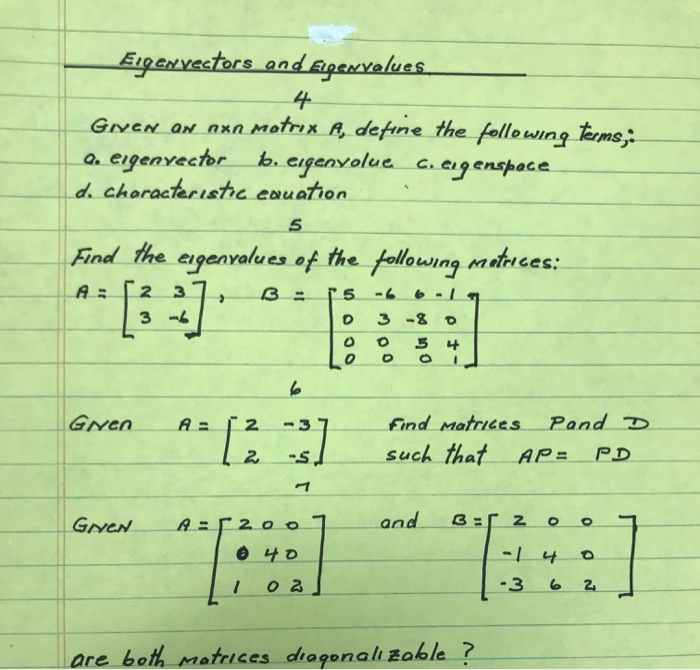 Eigenvectors and Eigenvalues
4
Given an nxn matrix A, define the following terms;:
a. eigenvector b. eigenvalue c. eigenspace
d. characteristic equation
5
Find the eigenvalues of the following matrices:
A = [ 2 3 ], B = [ 5 -6 6 -1 ]
3 -6 0 3 -8 0
0 0 5 4
0 0 0 1
6
Given A = [ 2 -3 ] find matrices P and D
2 -5 such that AP = PD
7
Given A = [ 2 0 0 ] and B = [ 2 0 0 ]
0 4 0 -1 4 0
1 0 2 -3 6 2
are both matrices diagonalizable ?